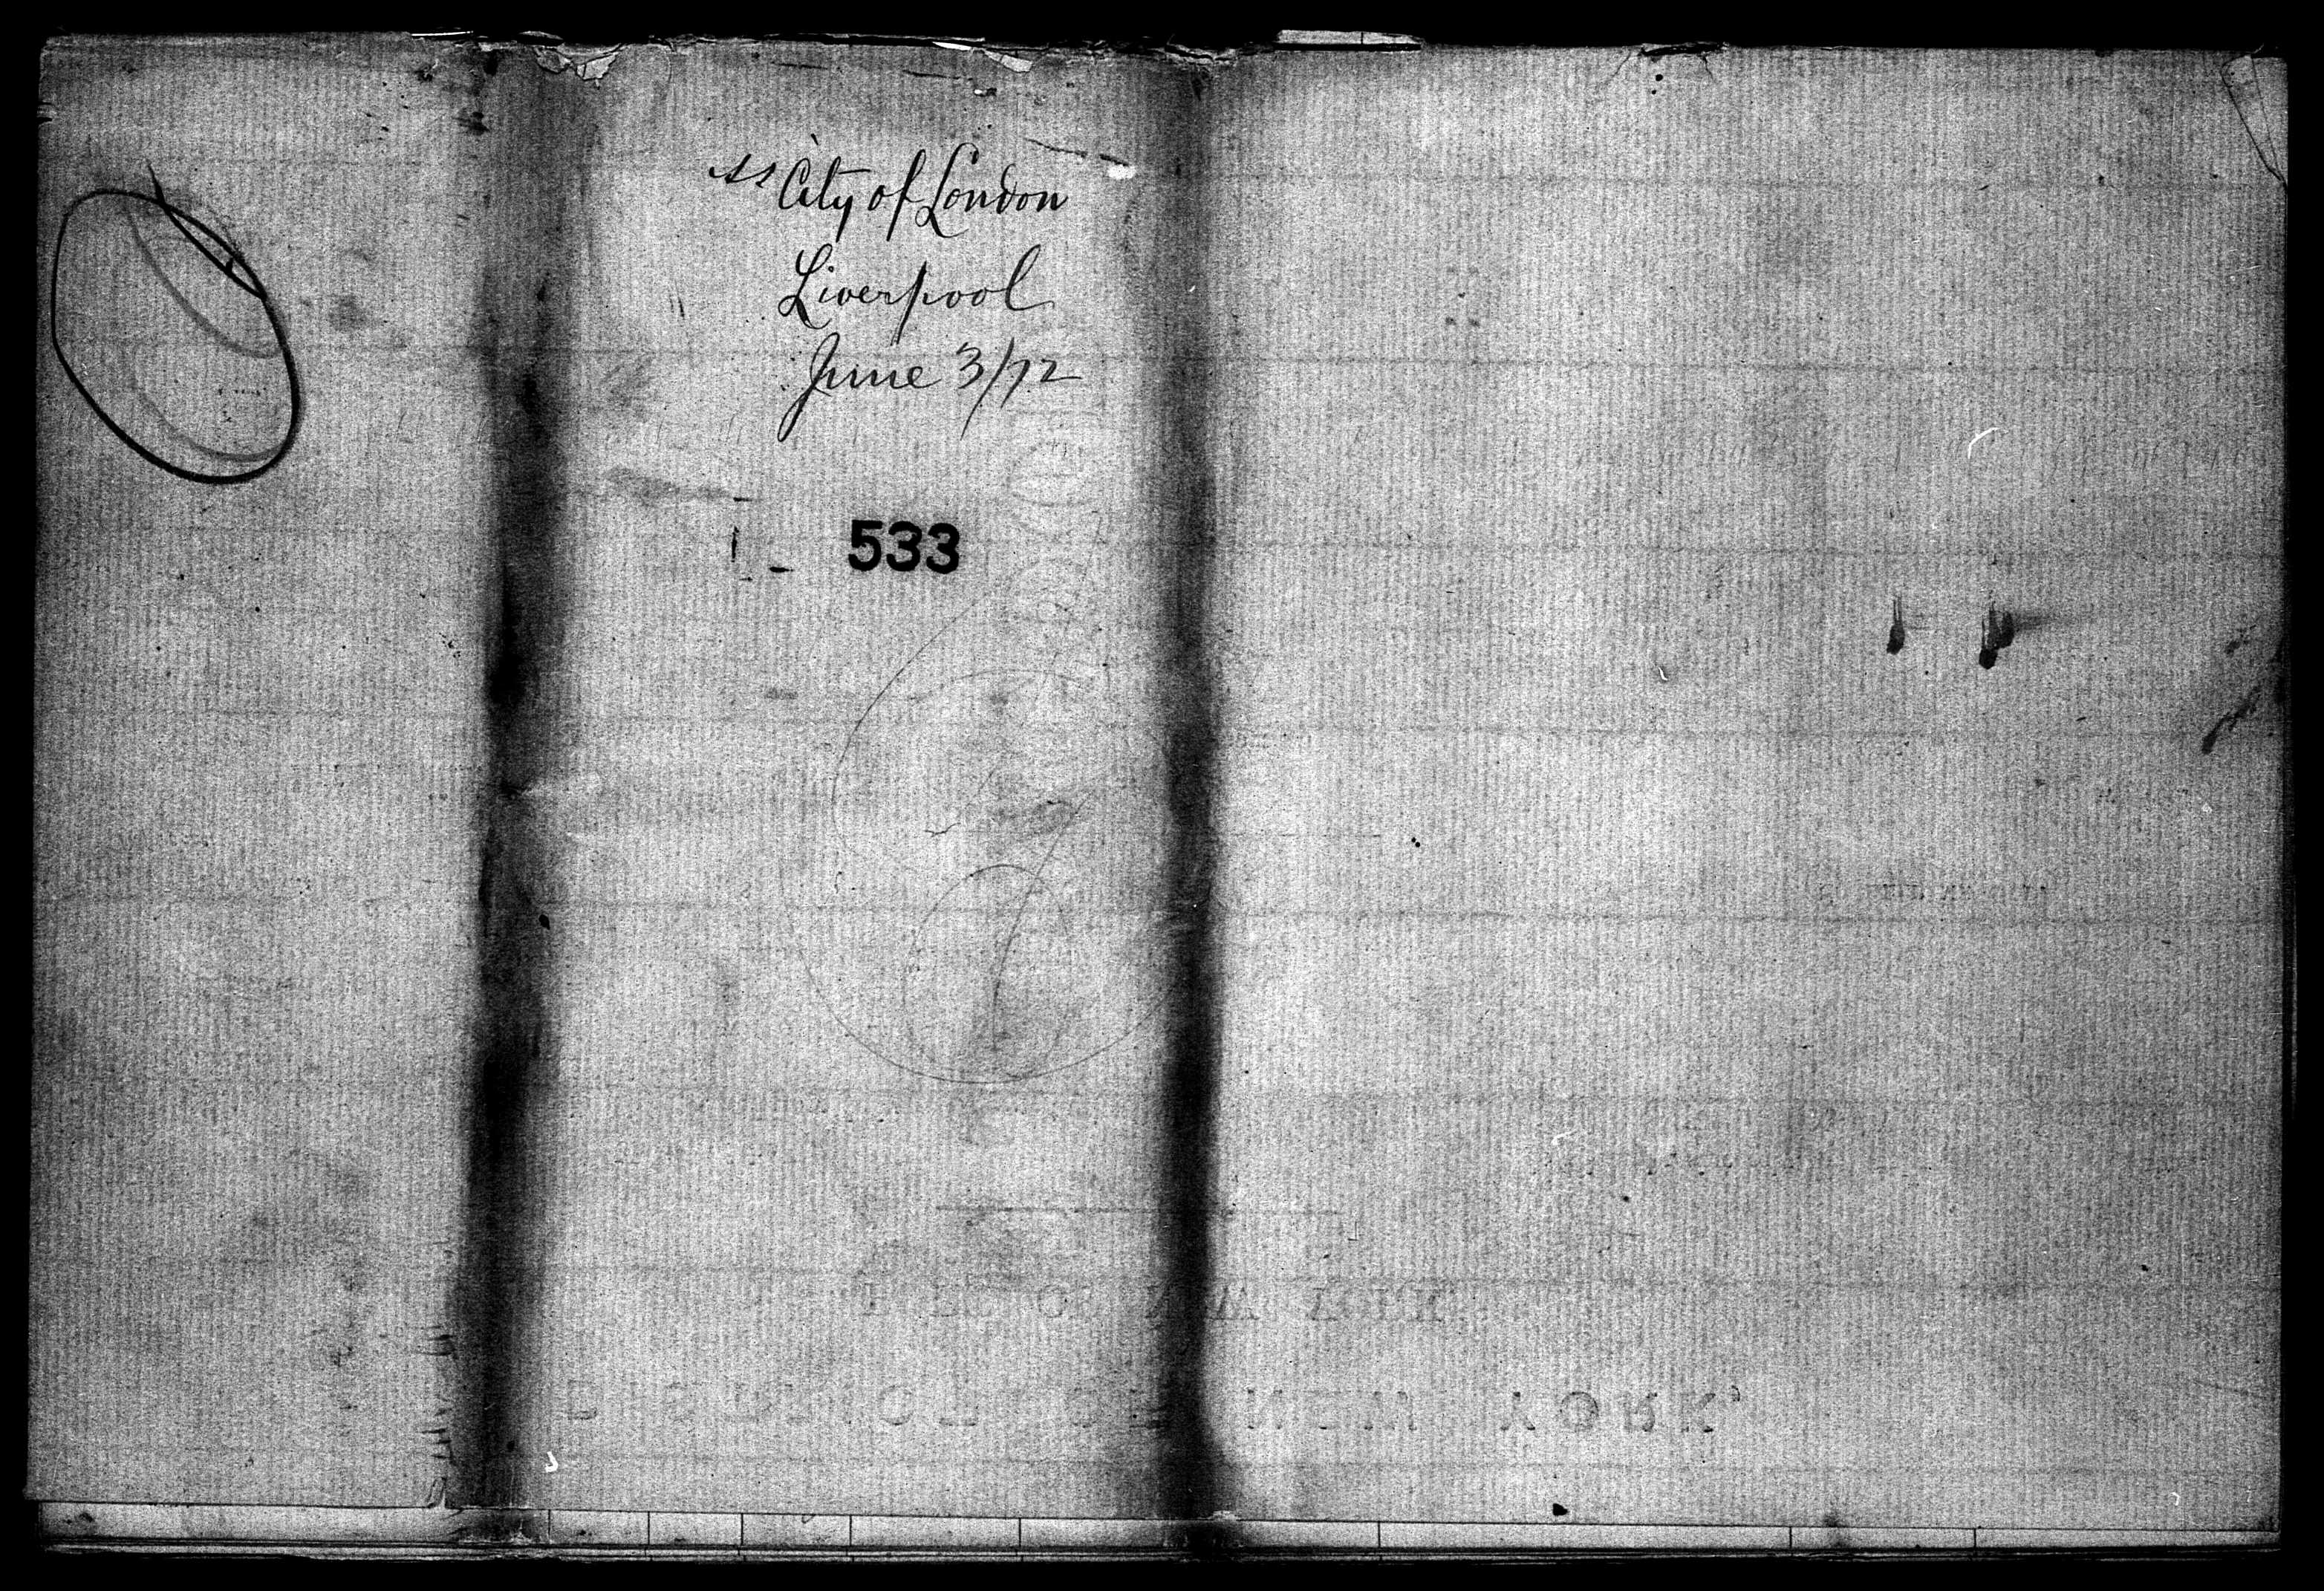 ss City of London
Liverpool
June 3/72
533
NEW YORK